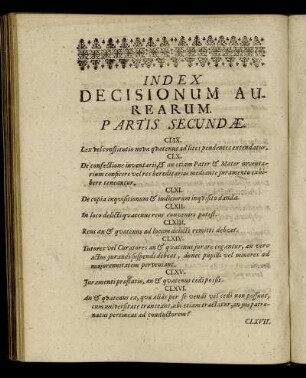 INDEX
DECISIONUM AU-
REARUM.
PARTIS SECUNDÆ.
CLIX.
Lex vel constitutio nova quatenus ad lites pendentes extendatur.
CLX.
De confectione inventarii, & an etiam Pater & Mater inventa-
rium conficere vel res hereditarias mediante juramento exhi-
bere teneantur.
CLXI.
De copia inquisitionum & indiciorum inquisito danda.
CLXII.
In loco delicti quatenus reus conveniri potest.
CLXIII.
Reus an & quatenus ad locum delicti remitti debeat.
CLXIV.
Tutores vel Curatores an & quatenus jurare cogantur, an vero
actus jurandi suspendi debeat, donec pupilli vel minores ad
majorennitatem perveniant.
CLXV.
Juramenti præstatio, an & quatenus cedi possit.
CLXVI.
An & quatenus ea, quæ aliàs per se vendi vel cedi non possunt,
cum universitate transeant, ubi etiam tractatur, an jus patro-
natus pertineat ad conductorem?
CLXVII.